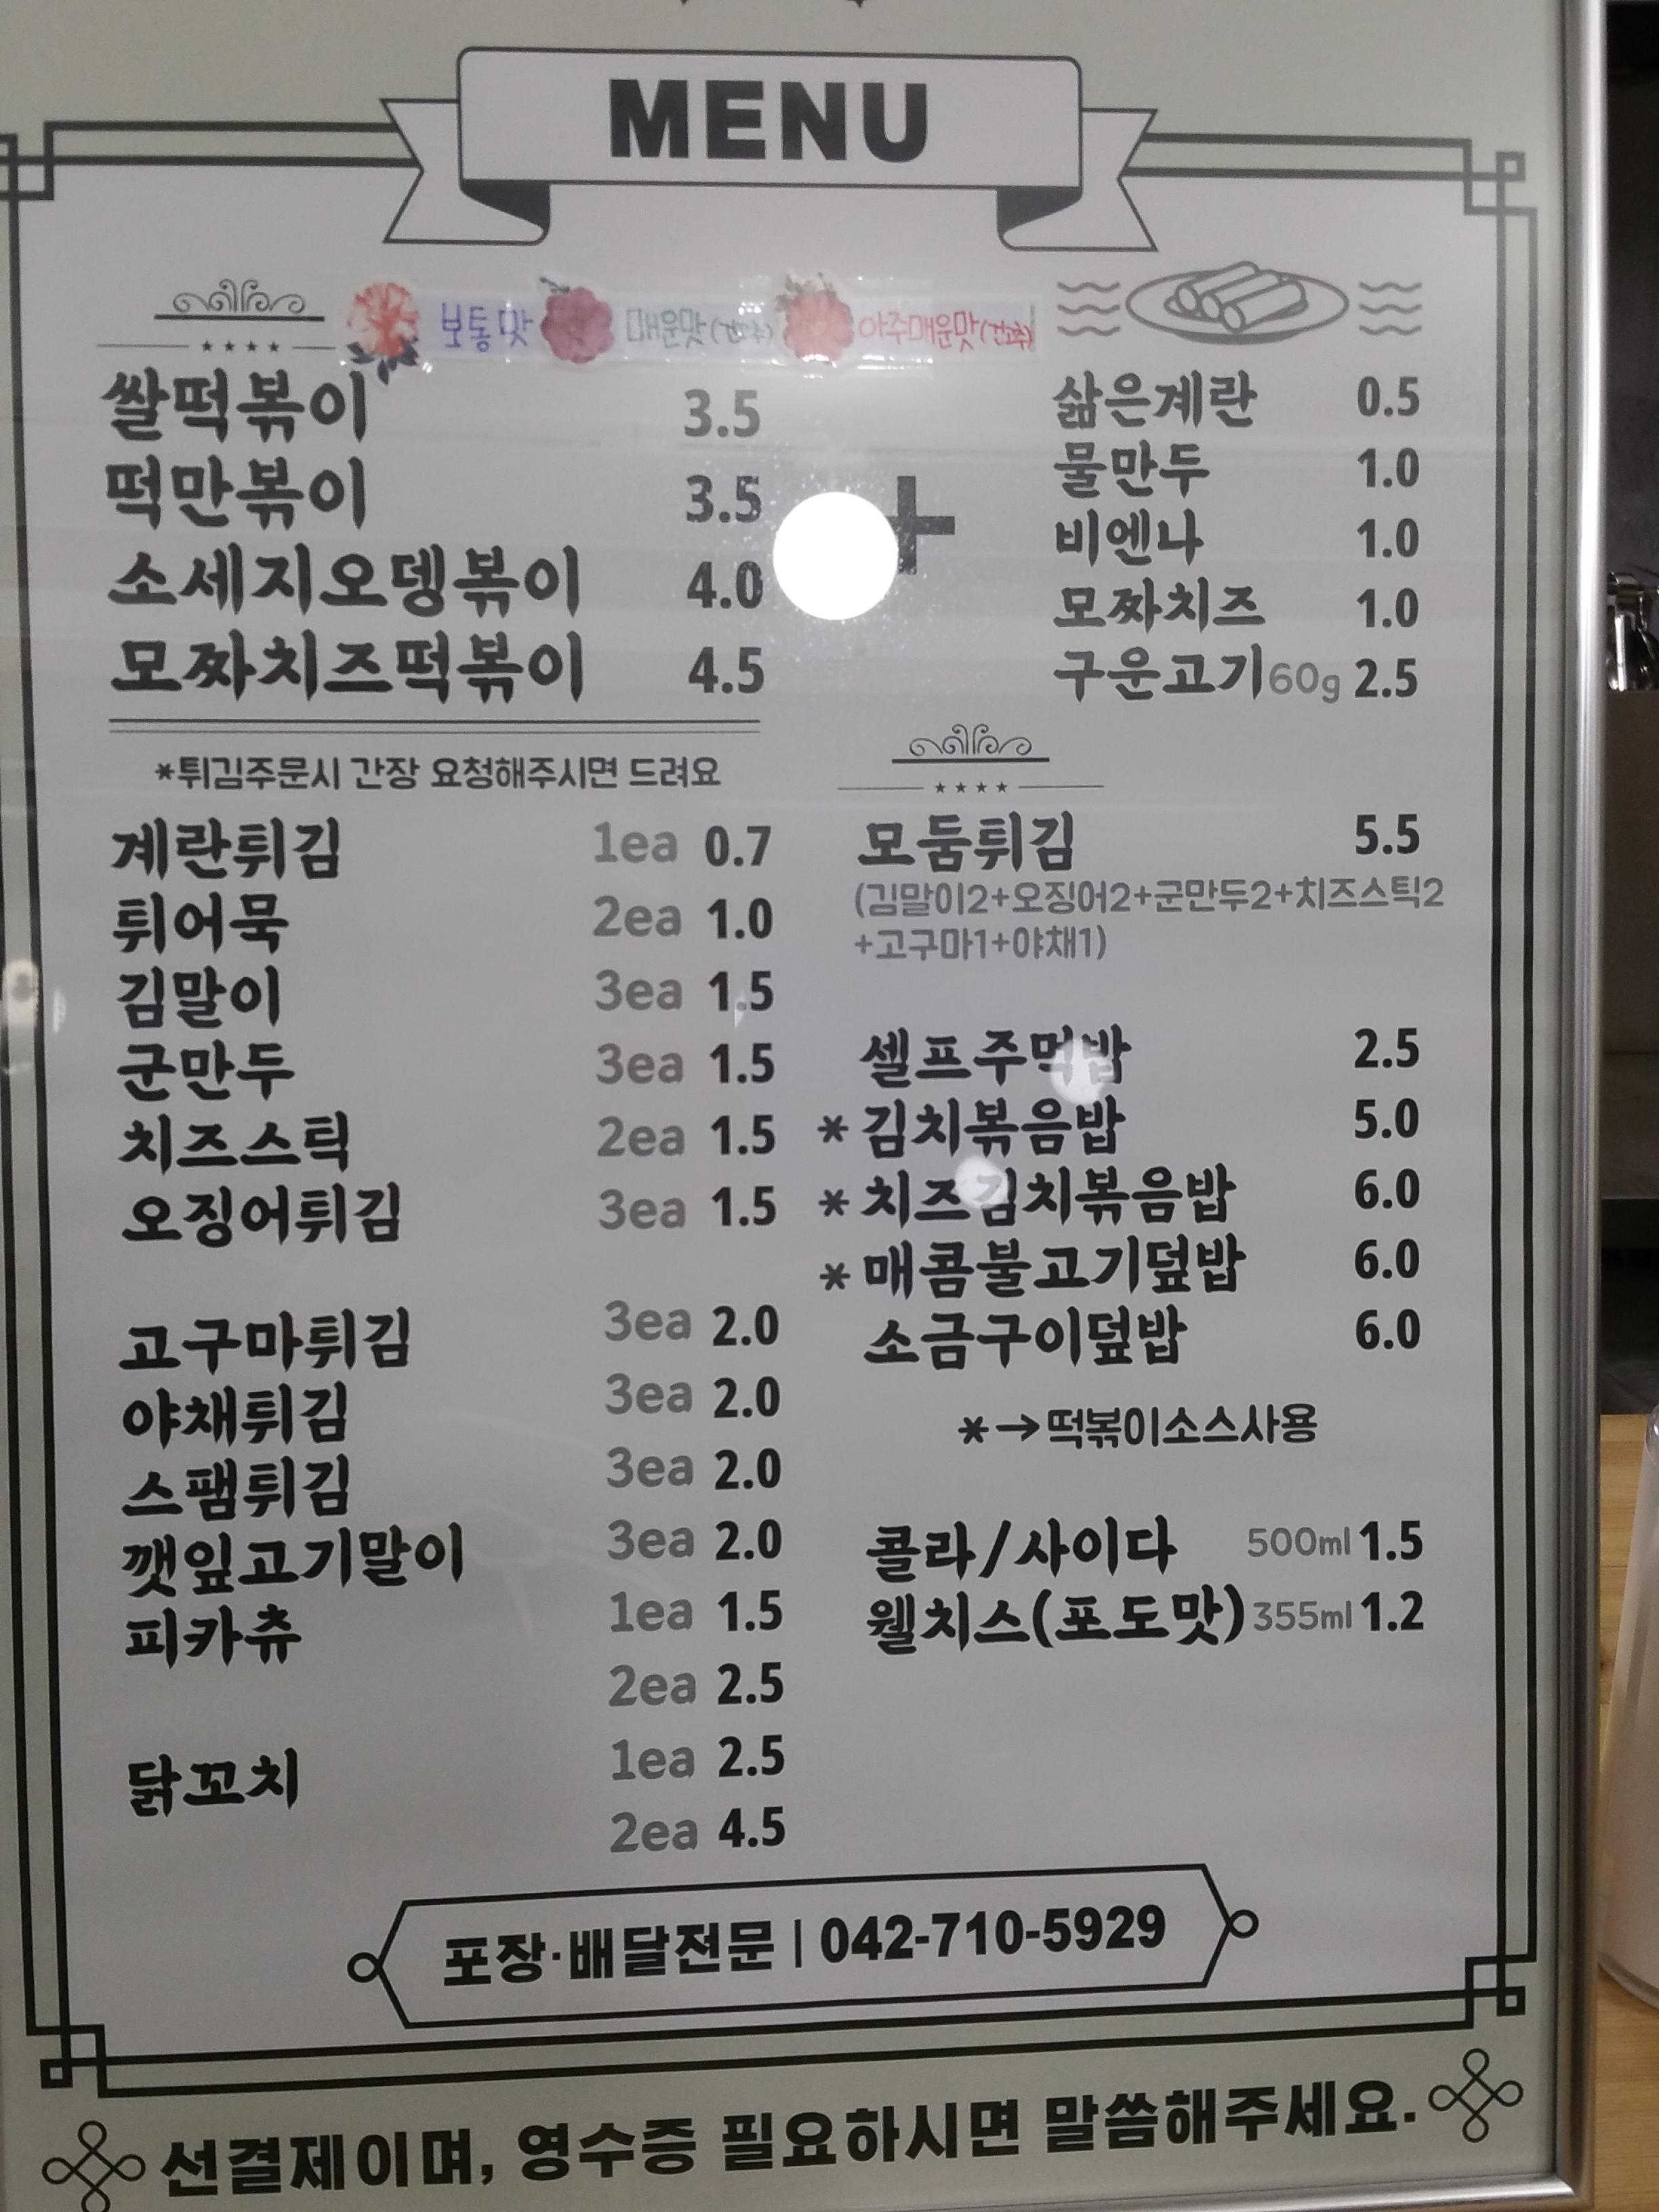 MENU
보통맛 매운맛(건고추) 아주매운맛(건고추)
쌀떡볶이 3.5
떡만볶이 3.5
소세지오뎅볶이 4.0
모짜치즈떡볶이 4.5
+
삶은계란 0.5
물만두 1.0
비엔나 1.0
모짜치즈 1.0
구운고기60g 2.5
*튀김주문시 간장 요청해주시면 드려요
계란튀김 1ea 0.7
튀어묵 2ea 1.0
김말이 3ea 1.5
군만두 3ea 1.5
치즈스틱 2ea 1.5
오징어튀김 3ea 1.5
고구마튀김 3ea 2.0
야채튀김 3ea 2.0
스팸튀김 3ea 2.0
깻잎고기말이 3ea 2.0
피카츄 1ea 1.5
2ea 2.5
닭꼬치 1ea 2.5
2ea 4.5
모둠튀김 5.5
(김말이2+오징어2+군만두2+치즈스틱2
+고구마1+야채1)
셀프주먹밥 2.5
*김치볶음밥 5.0
*치즈김치볶음밥 6.0
*매콤불고기덮밥 6.0
소금구이덮밥 6.0
*→떡볶이소스사용
콜라/사이다 500ml 1.5
웰치스(포도맛) 355ml 1.2
포장·배달전문 | 042-710-5929
선결제이며, 영수증 필요하시면 말씀해주세요.